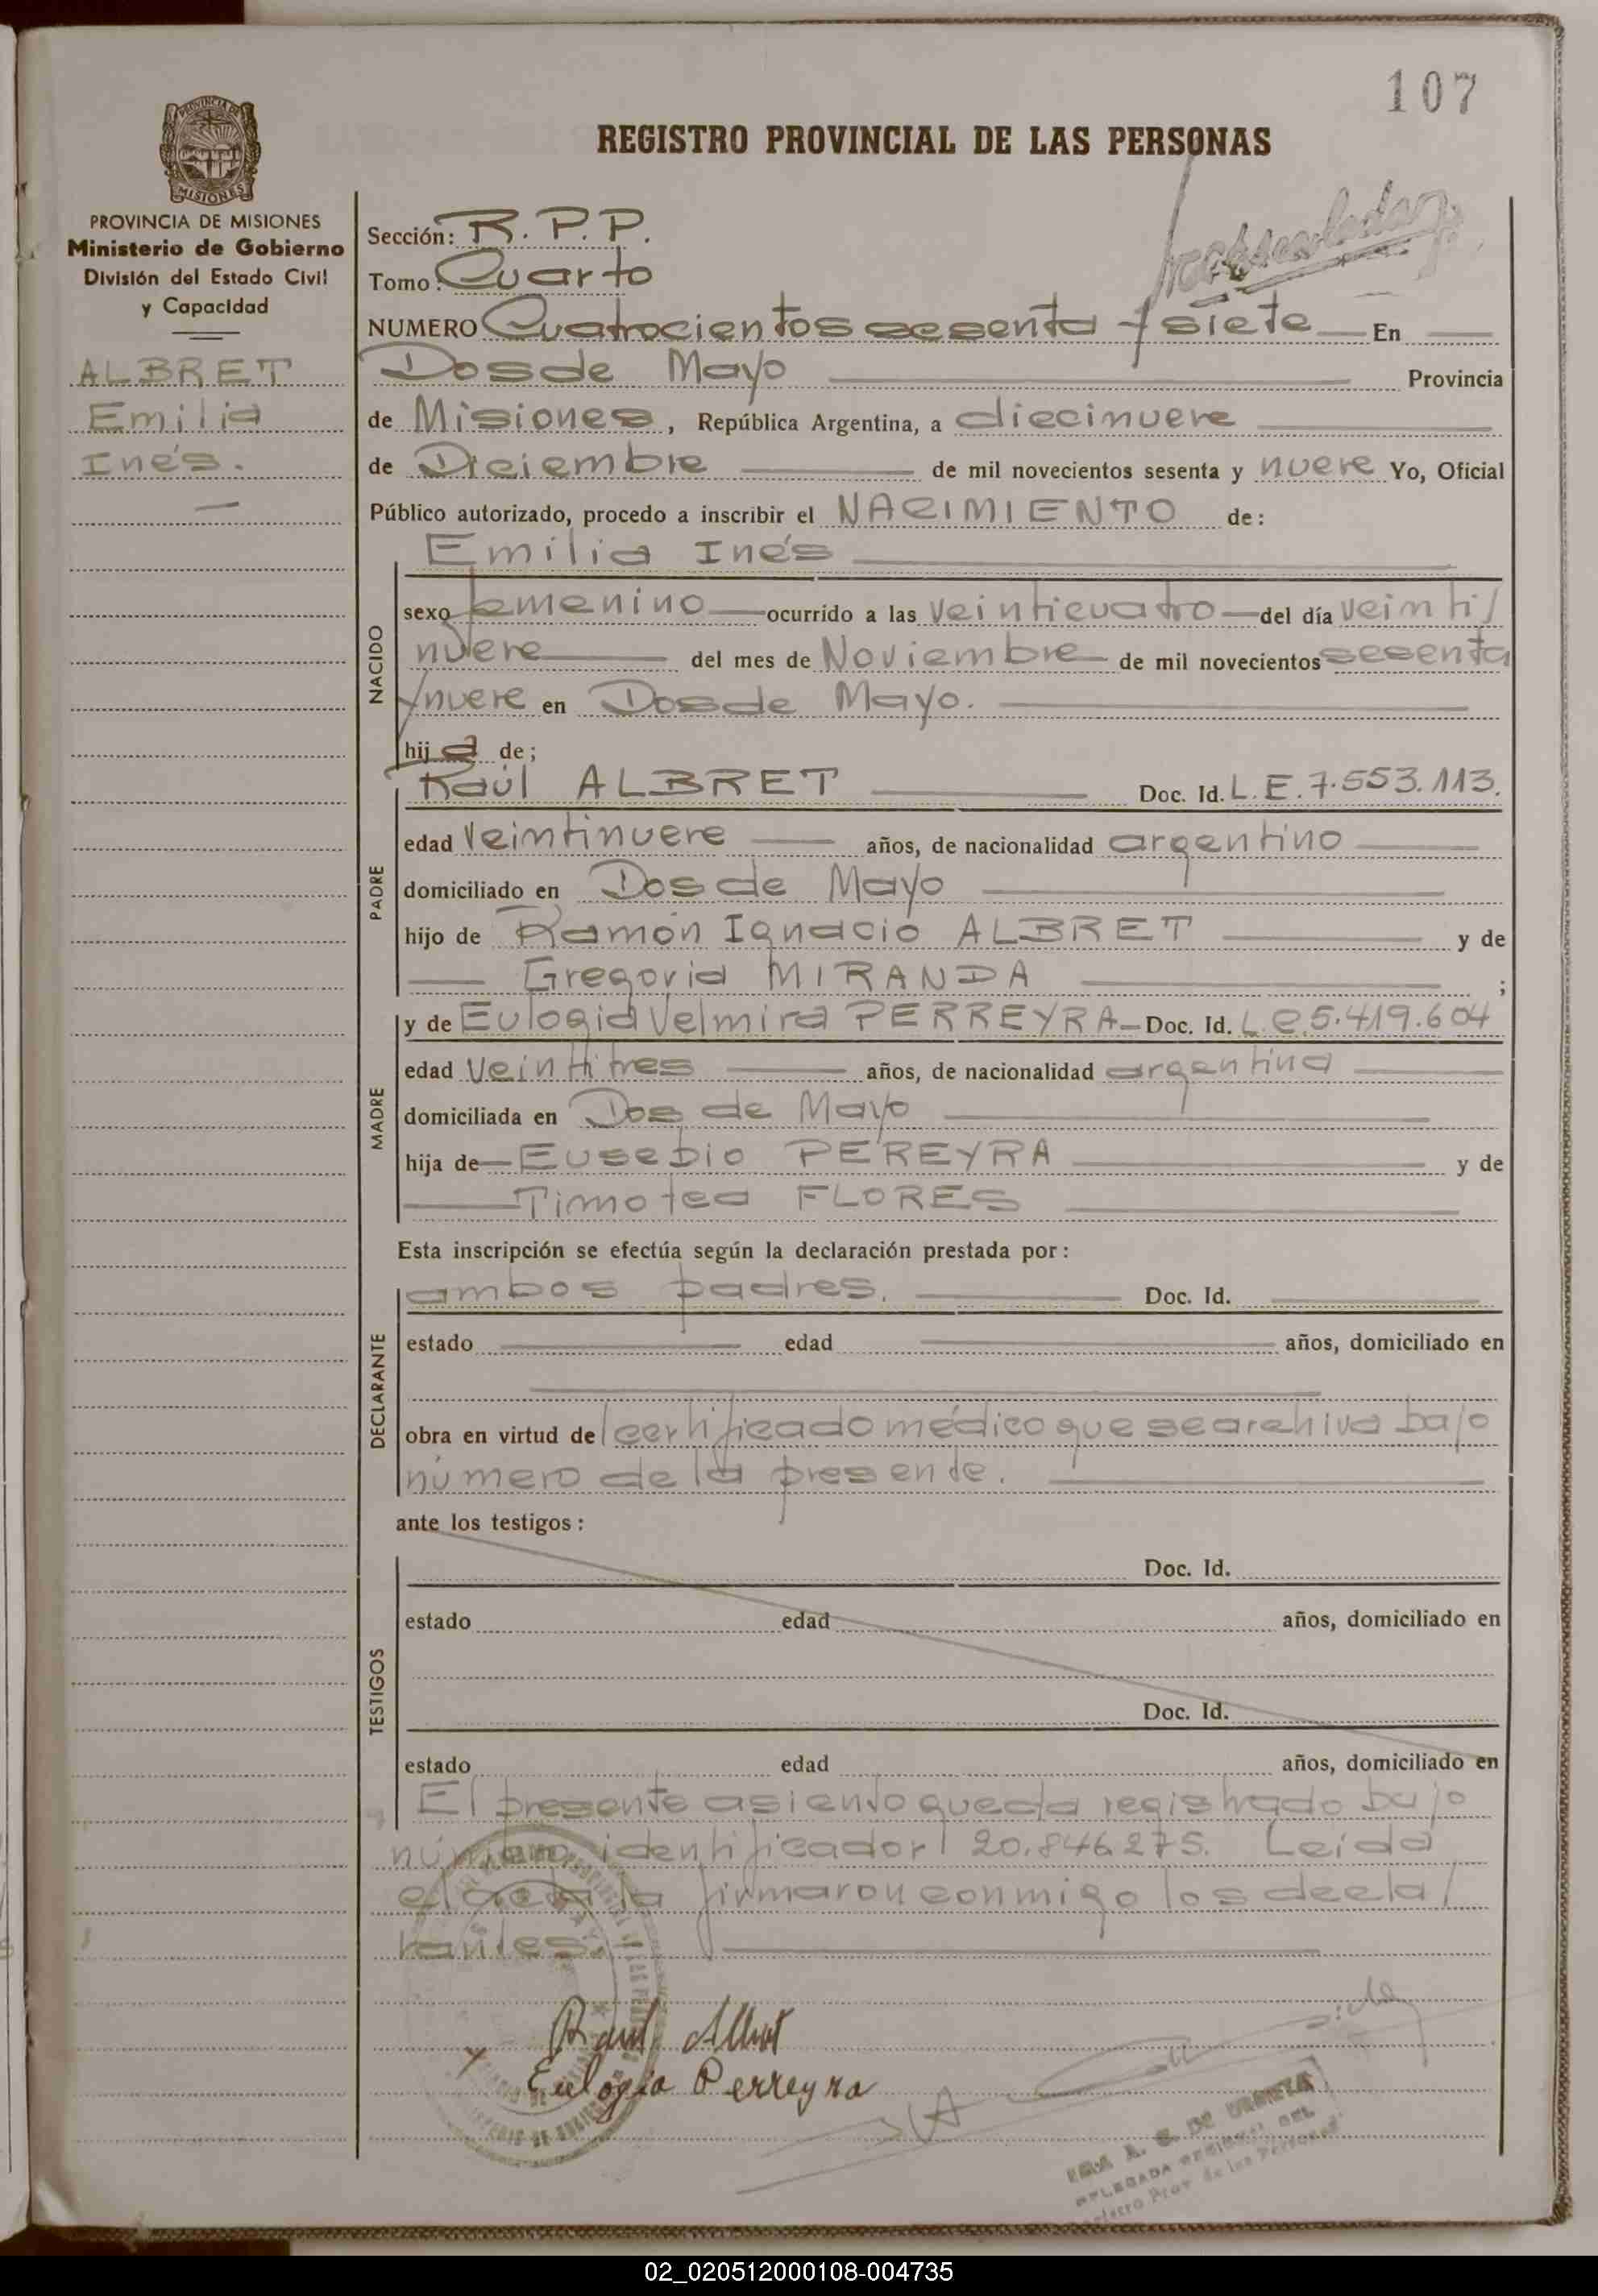 107
REGISTRO PROVINCIAL DE LAS PERSONAS
PROVINCIA DE MISIONES
PROVINCIA DE MISIONES
Ministerio de Gobierno
División del Estado Civil
y Capacidad
ALBRET
Emilia
Inés.
Sección: R.P.P.
Tomo: Cuarto
NUMERO Cuatrocientos sesenta y siete En
Dos de Mayo Provincia
de Misiones, República Argentina, a diecinueve
de Diciembre de mil novecientos sesenta y nueve Yo, Oficial
Público autorizado, procedo a inscribir el NACIMIENTO de:
Emilia Inés
NACIDO
sexo femenino ocurrido a las veinticuatro del día veinti/
nueve del mes de Noviembre de mil novecientos sesenta
y nueve en Dos de Mayo.
hija de;
PADRE
Raúl ALBRET Doc. Id. L.E. 7.553.113.
edad veintinueve años, de nacionalidad argentino
domiciliado en Dos de Mayo
hijo de Ramón Ignacio ALBRET y de
Gregoria MIRANDA ;
MADRE
y de Eulogia Velmira PERREYRA Doc. Id. L.C.5.419.604
edad veintitres años, de nacionalidad argentina
domiciliada en Dos de Mayo
hija de Eusebio PEREYRA y de
Timotea FLORES
Esta inscripción se efectúa según la declaración prestada por:
DECLARANTE
ambos padres. Doc. Id.
estado edad años, domiciliado en
obra en virtud del certificado médico que se archiva bajo
número de la presente.
ante los testigos:
TESTIGOS
Doc. Id.
estado edad años, domiciliado en
Doc. Id.
estado edad años, domiciliado en
El presente asiento queda registrado bajo
número identificador 20.846.275. Leida
el acta la firmaron conmigo los decla/
rantes.-
Raul Albret
Eulogia Perreyra
DE URBIETA
DELEGADA REGIONAL DEL
Prov. de las Personas
02_020512000108-004735